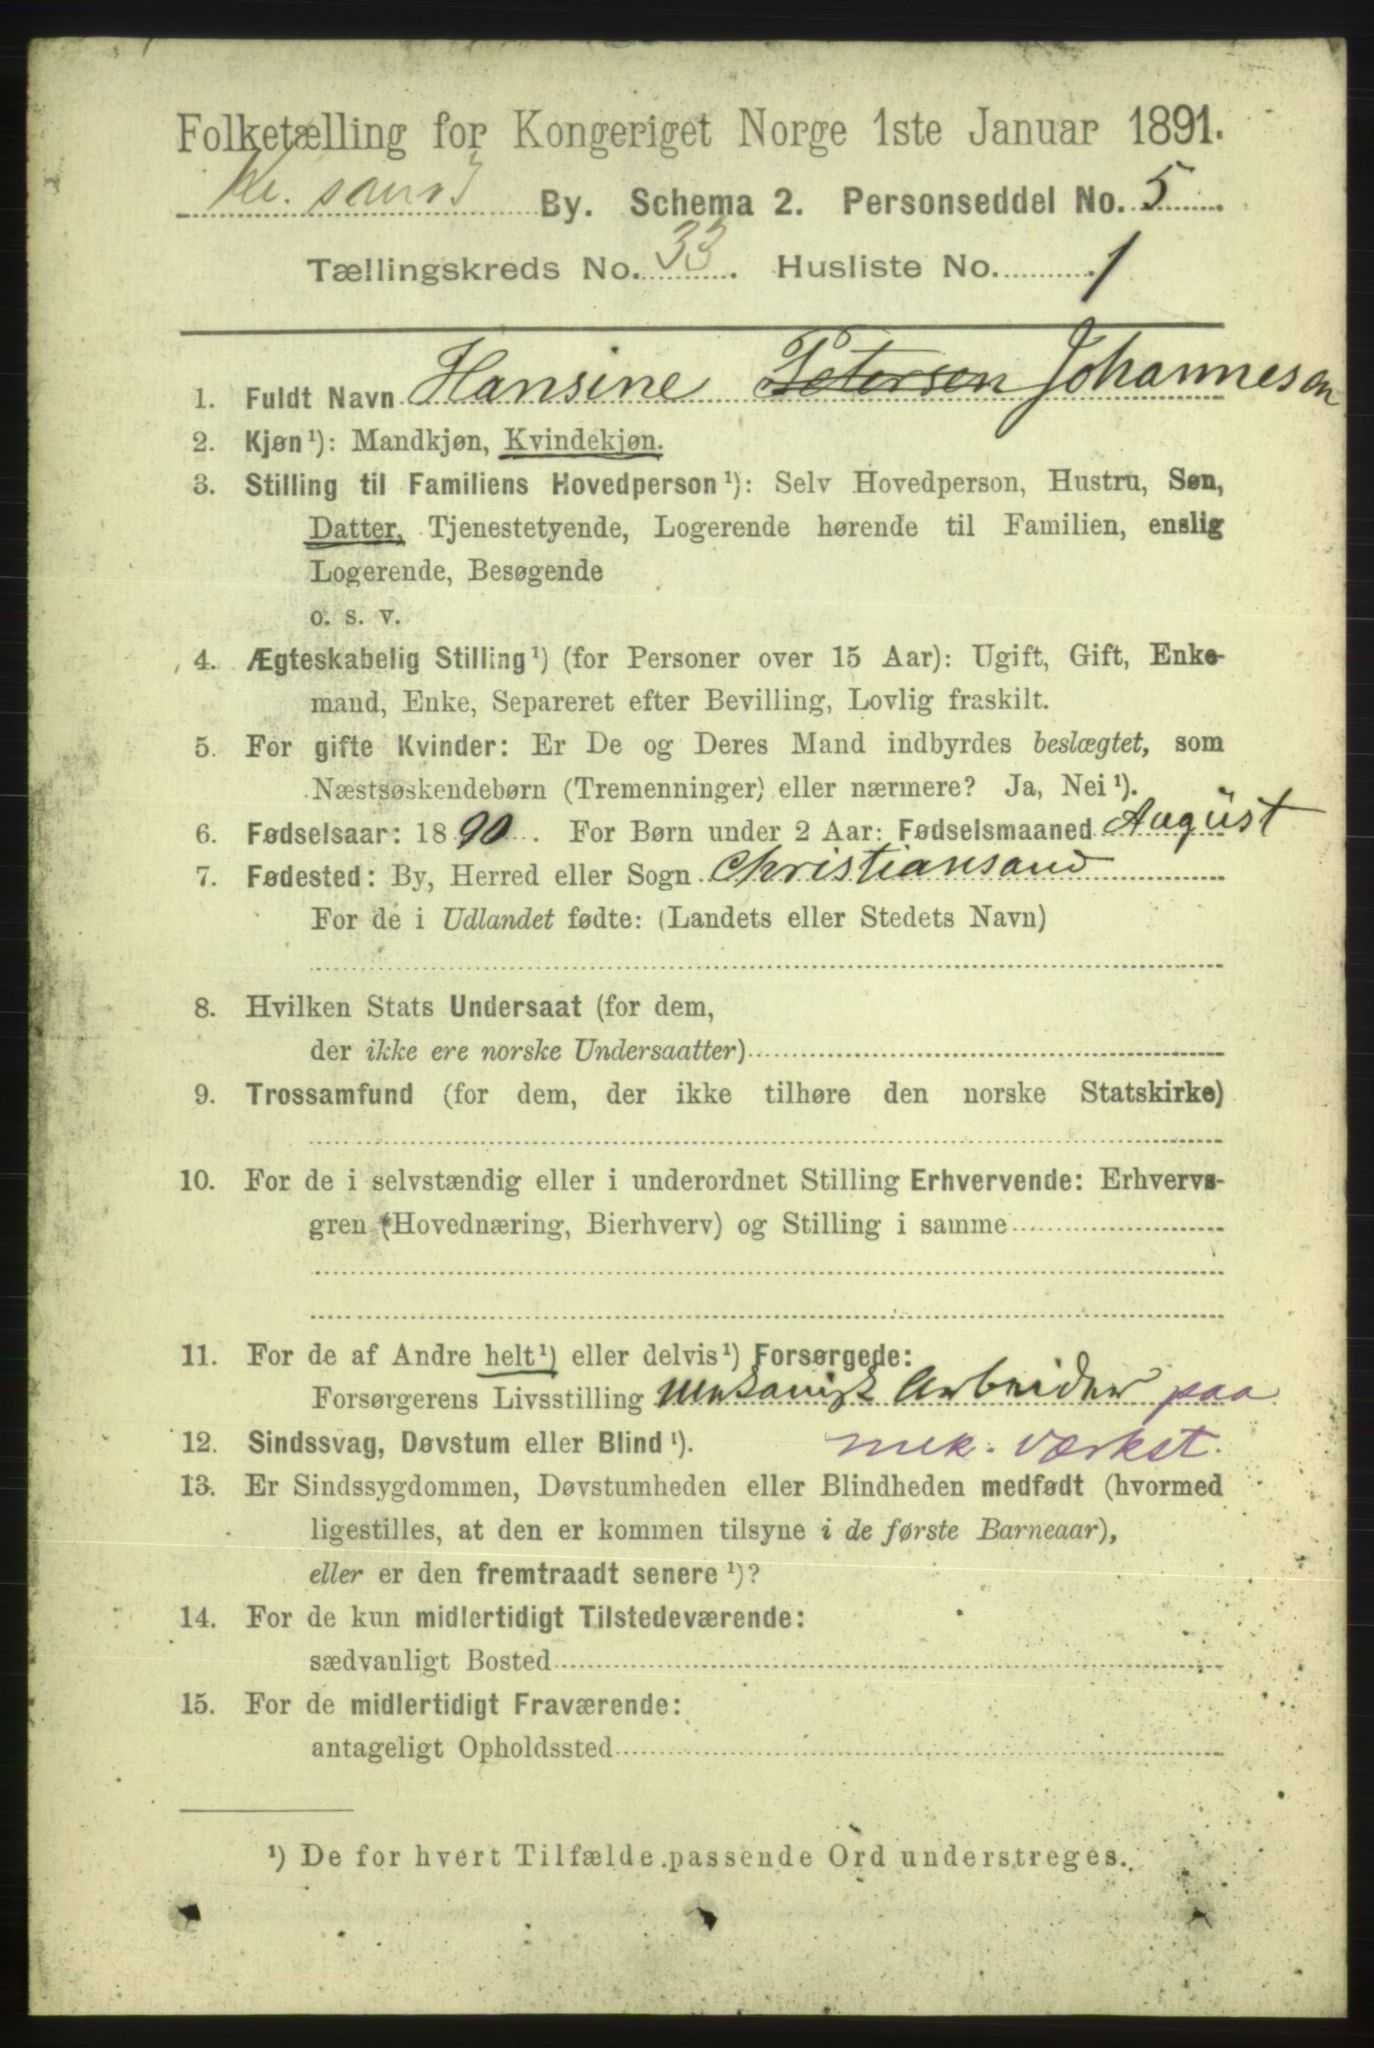 Folketælling for Kongeriget Norge 1ste Januar 1891.
Kr. sand By. Schema 2. Personseddel No. 5
Tællingskreds No. 33. Husliste No. 1
1. Fuldt Navn Hansine Petersen Johannesen
2. Kjøn¹): Mandkjøn, Kvindekjøn.
3. Stilling til Familiens Hovedperson¹): Selv Hovedperson, Hustru, Søn,
Datter, Tjenestetyende, Logerende hørende til Familien, enslig
Logerende, Besøgende
o. s. v.
4. Ægteskabelig Stilling¹) (for Personer over 15 Aar): Ugift, Gift, Enke-
mand, Enke, Separeret efter Bevilling, Lovlig fraskilt.
5. For gifte Kvinder: Er De og Deres Mand indbyrdes beslægtet, som
Næstsøskendebørn (Tremenninger) eller nærmere? Ja, Nei¹).
6. Fødselsaar: 1890. For Børn under 2 Aar: Fødselsmaaned August
7. Fødested: By, Herred eller Sogn Christiansand
For de i Udlandet fødte: (Landets eller Stedets Navn)
8. Hvilken Stats Undersaat (for dem,
der ikke ere norske Undersaatter)
9. Trossamfund (for dem, der ikke tilhøre den norske Statskirke)
10. For de i selvstændig eller i underordnet Stilling Erhvervende: Erhvervs-
gren (Hovednæring, Bierhverv) og Stilling i samme
11. For de af Andre helt¹) eller delvis¹) Forsørgede:
Forsørgerens Livsstilling Mekanisk Arbeider paa
12. Sindssvag, Døvstum eller Blind¹). mek. værkst.
13. Er Sindssygdommen, Døvstumheden eller Blindheden medfødt (hvormed
ligestilles, at den er kommen tilsyne i de første Barneaar),
eller er den fremtraadt senere¹)?
14. For de kun midlertidigt Tilstedeværende:
sædvanligt Bosted
15. For de midlertidigt Fraværende:
antageligt Opholdssted
¹) De for hvert Tilfælde passende Ord understreges.